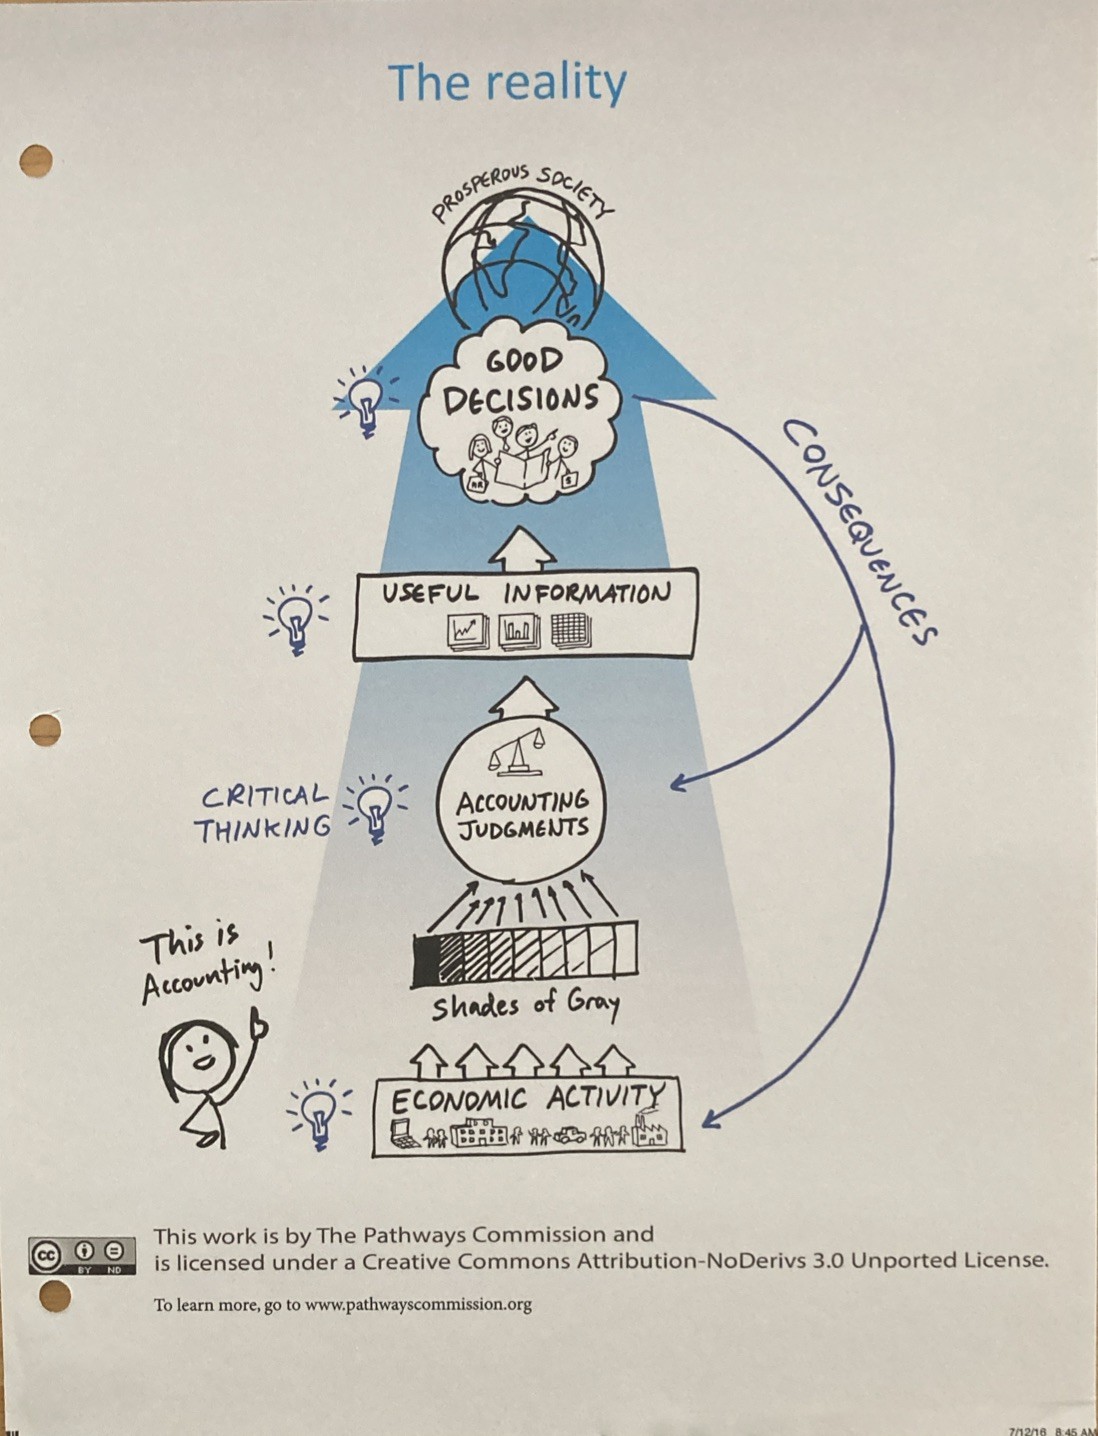 The reality
PROSPEROUS SOCIETY
GOOD
DECISIONS
HR
$
CONSEQUENCES
USEFUL INFORMATION
CRITICAL
THINKING
ACCOUNTING
JUDGMENTS
This is
Accounting!
Shades of Gray
ECONOMIC ACTIVITY
cc
BY ND
This work is by The Pathways Commission and
is licensed under a Creative Commons Attribution-NoDerivs 3.0 Unported License.
To learn more, go to www.pathwayscommission.org
7/12/16 8:45 AM